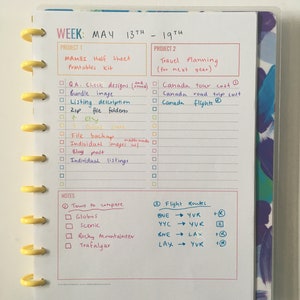 WEEK: MAY 13TH - 19TH
PROJECT 1
PROJECT 2
Half Sheet
Printables Kit
Travel Planning
(for next year)
Q.A. Check designs
Bundle images
Listing description
Zip file folders
Etsy
File backup
Individual images
Blog post
Individual listings
Canada tour cost ①
Canada road trip cost
Canada flights ②
NOTES
① Tours to compare
Globus
Scenic
Rocky Mountaineer
Trafalgar
② Flight Routes
BNE → YVR
YYC → YVR
BNE → LAX
LAX → YVR